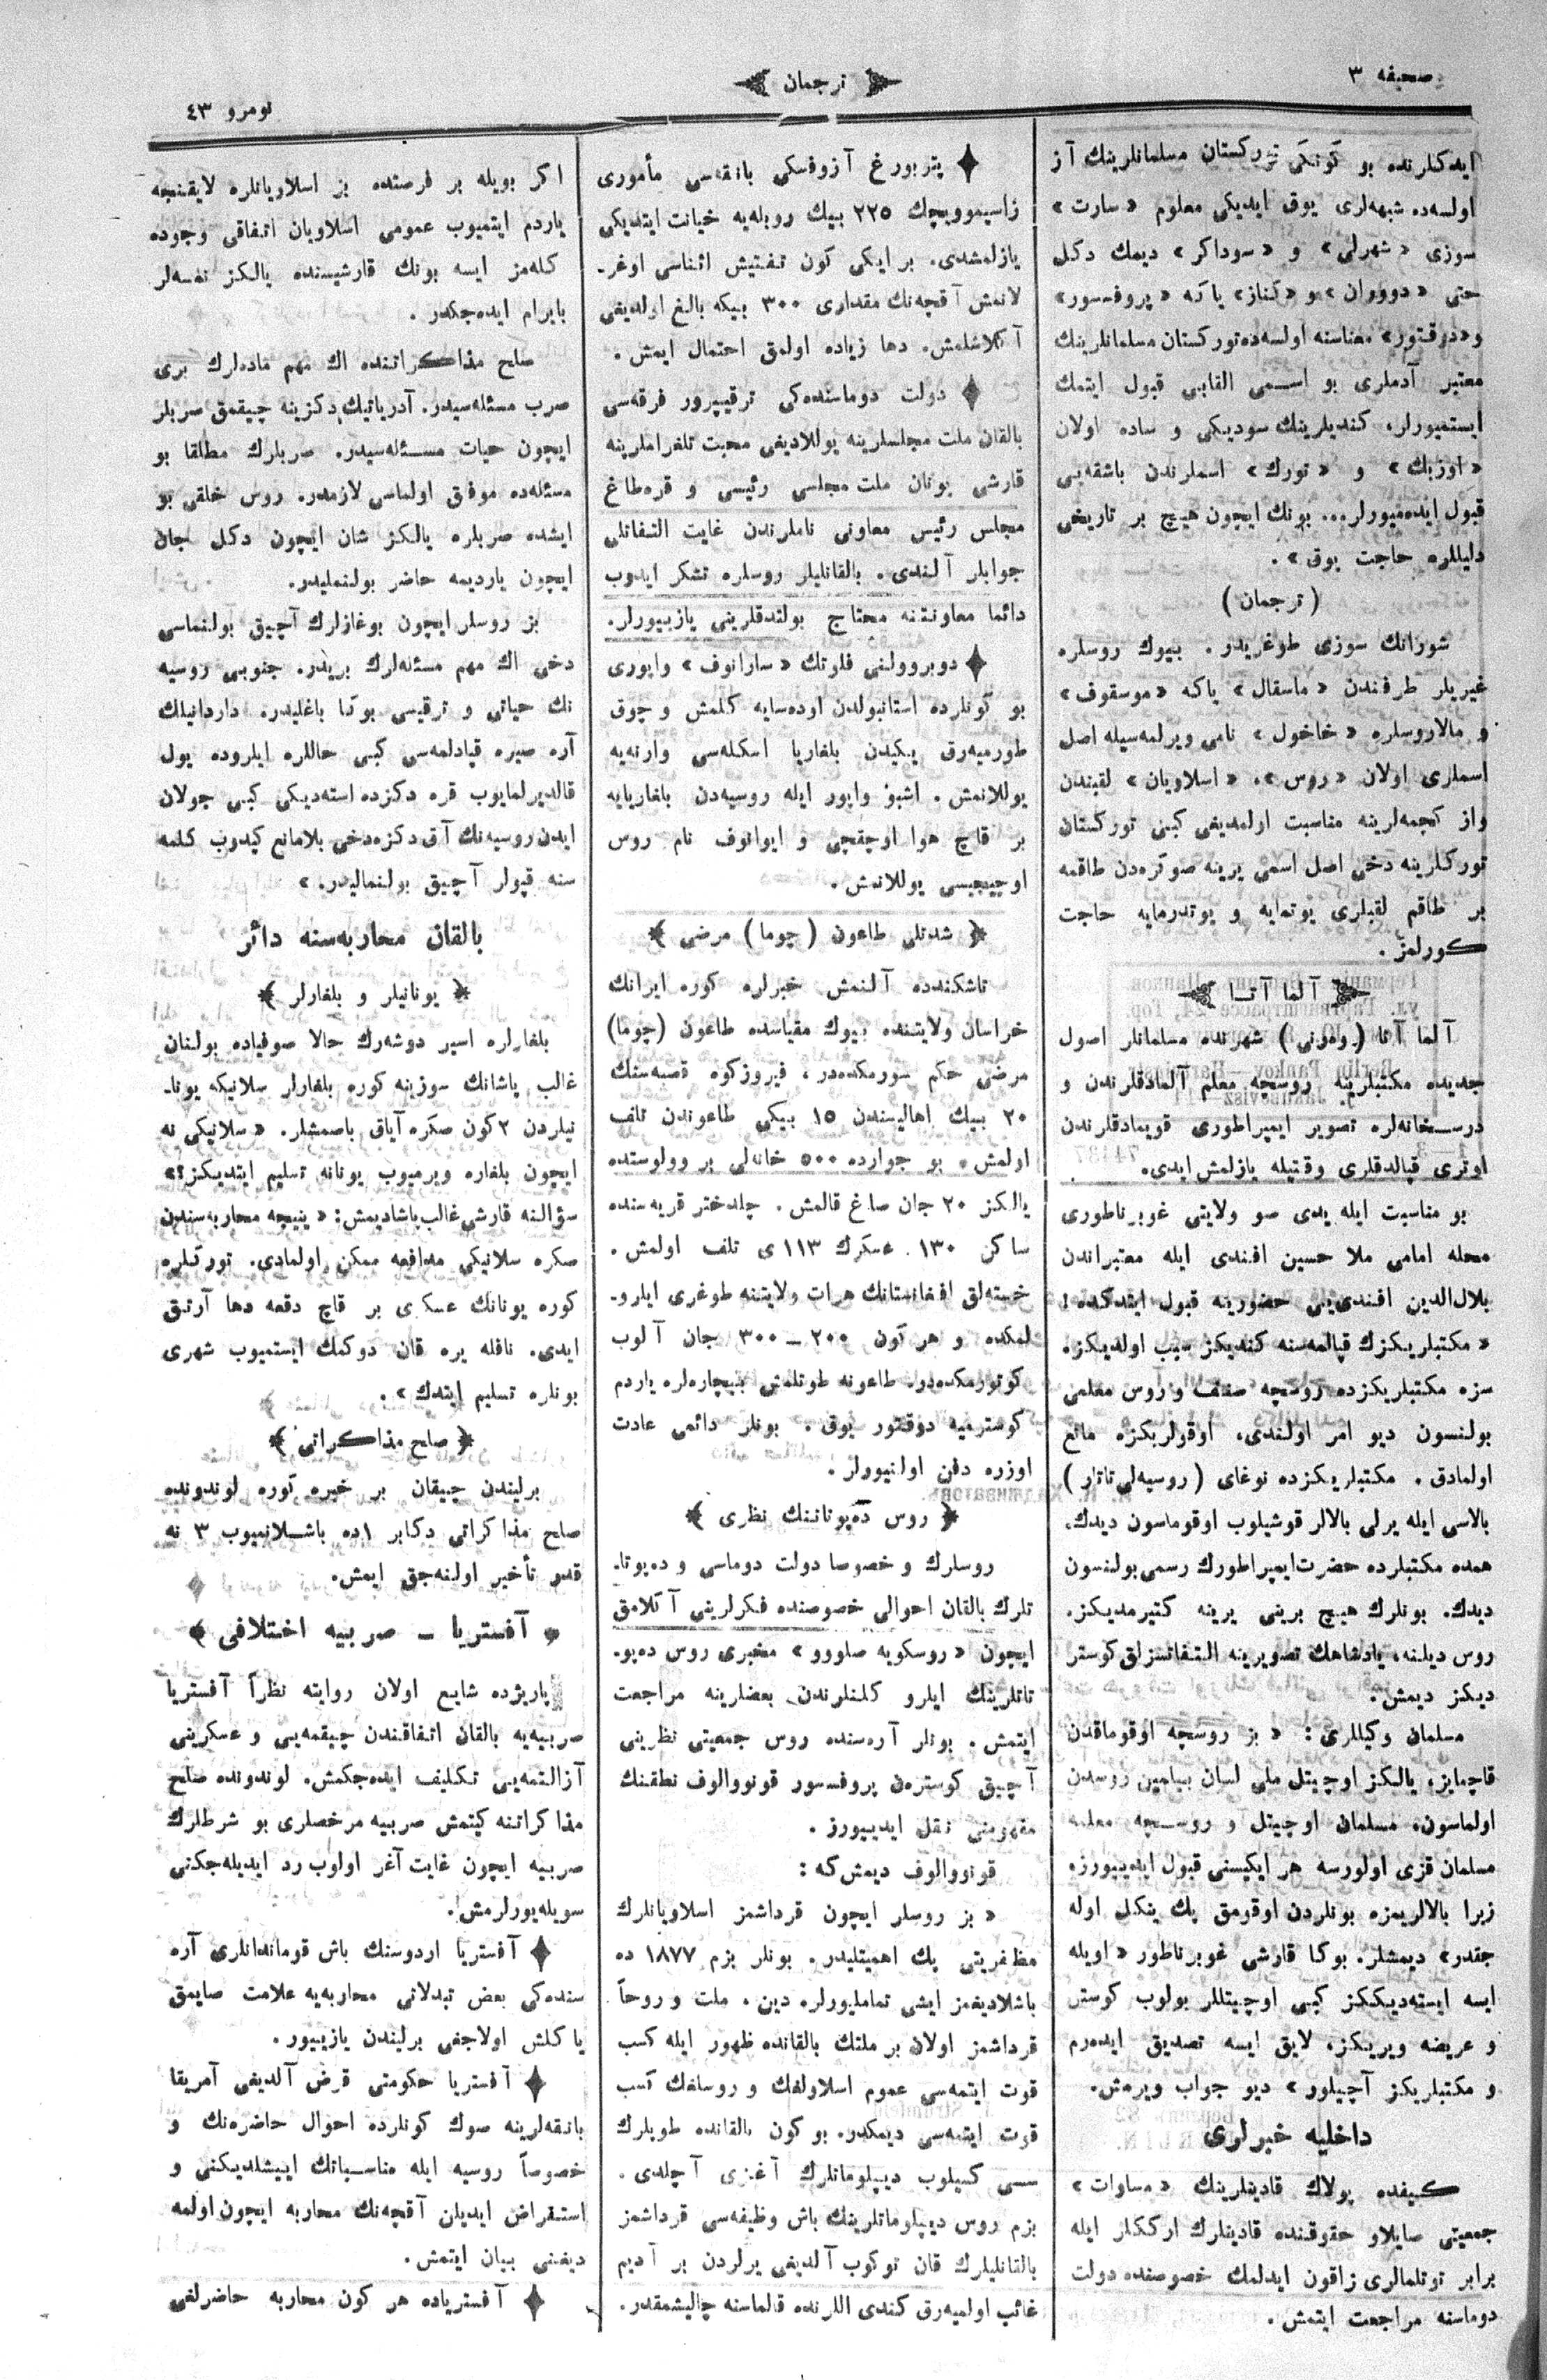 صحیفه ۳
ترجمان
نومرو ٤٣
ایدکلرنده بو کونکی تورکستان مسلمانلرینك آز
اولسه‌ده شبهه‌لری یوق ایدیکی معلوم «سارت»
سوزی «شهرلی» و «سوداکر» دیمك دکل
حتی «دووران» و «کناز» یا که «پروفسور»
و «دوقتور» معناسنه اولسه‌ده تورکستان مسلمانلرینك
معتبر آدملری بو اسمی القابی قبول ایتمك
ایستمیورلر، کندیلرینك سودیکی و ساده اولان
«اوزبك» و «تورك» اسملرندن باشقه‌یی
قبول ایده‌میورلر... بونك ایچون هیچ بر تاریخی
دلیللره حاجت یوق».
(ترجمان)
شورانك سوزی طوغریدر. بیوك روسلره
غیریلر طرفندن «ماسقال» یا که «موسقوف»
و مالاروسلره «خاخول» نامی ویرلمه‌سیله اصل
اسملری اولان «روس»، «اسلاویان» لقبندن
واز کچمه‌لرینه مناسبت اولمدیغی کبی تورکستان
تورکلرینه دخی اصل اسمی یرینه صوکره‌دن طاقمه
بر طاقم لقبلری یوتمایه و یوتدرمایه حاجت
کورلمز.
آلما آتا
آلما آتا (ویرنی) شهرنده مسلمانلر اصول
جدیده مکتبلرینه روسچه معلم آلمادقلرندن و
درسخانه‌لره تصویر ایمپراطوری قویمادقلرندن
اوتری قپالدقلری وقتیله یازلمش ایدی.
بو مناسبت ایله یدی صو ولایتی غوبرناطوری
محله امامی ملا حسین افندی ایله معتبراندن
بلال‌الدین افندی‌یی حضورینه قبول ایتدکده:
«مکتبلریکزك قپالمه‌سنه کندیکز سبب اولدیکز،
سزه مکتبلریکزده روسچه صنف و روس معلمی
بولنسون دیو امر اولندی، اوقولریکزه مانع
اولمادق. مکتبلریکزده نوغای (روسیه‌لی تاتار)
بالاسی ایله یرلی بالالر قوشیلوب اوقوماسون دیدك.
همده مکتبلرده حضرت ایمپراطورك رسمی بولنسون
دیدك. بونلرك هیچ برینی یرینه کتیرمدیکز.
روس دیلنه، پادشاهك تصویرینه التفاتسزلق کوستر
دیکز دیمش.
مسلمان وکیللری: «بز روسچه اوقوماقدن
قاچمایز، یالکز اوچیتل ملی لسان بیلمین روسدن
اولماسون، مسلمان اوچیتل و روسچه معلمه
مسلمان قزی اولورسه هر ایکیسنی قبول ایدییورز.
زیرا بالالریمزه بونلردن اوقومق پك ینکل اوله
جقدر» دیمشلر. بوکا قارشی غوبرناطور «اویله
ایسه ایسته‌دیککز کبی اوچیتللر بولوب کوستر
و عریضه ویریکز، لایق ایسه تصدیق ایده‌رم
و مکتبلریکز آچیلور» دیو جواب ویرمش.
داخلیه خبرلری
کیفده پولاك قادینلرینك «مساوات»
جمعیتی صایلاو حقوقنده قادینلرك ارککلر ایله
برابر توتلمالری زاقون ایدلمك خصوصنده دولت
دوماسنه مراجعت ایتمش.
پتربورغ آزوفسکی بانقه‌سی مأموری
زاسیموویچك ۲۲۵ بیك روبله‌یه خیانت ایتدیکی
یازلمشدی. بر ایکی کون تفتیش اثناسی اوغر-
لانمش آقچه‌نك مقداری ۳۰۰ بیکه بالغ اولدیغی
آکلاشلمش. دها زیاده اولمق احتمال ایمش.
دولت دوماسنده‌کی ترقیپرور فرقه‌سی
بالقان ملت مجلسلرینه یوللادیغی محبت تلغراملرینه
قارشی یونان ملت مجلسی رئیسی و قره‌طاغ
مجلس رئیس معاونی ناملرندن غایت التفاتلی
جوابلر آلندی. بالقانلیلر روسلره تشکر ایدوب
دائما معاونتنه محتاج بولندقلرینی یازییورلر.
دوبروولنی فلوتك «ساراتوف» واپوری
بو کونلرده استانبولدن اوده‌سایه کلمش و چوق
طورمیه‌رق یکیدن بلغاریا اسکله‌سی وارنه‌یه
یوللانمش. اشبو واپور ایله روسیه‌دن بلغاریایه
بر قاچ هوا اوچقچی و ایوانوف نام روس
اوچیجیسی یوللانمش.
شدتلی طاعون (چوما) مرضی
تاشکندده آلنمش خبرلره کوره ایرانك
خراسان ولایتنده بیوك مقیاسده طاعون (چوما)
مرضی حکم سورمکده‌در، فیروزکوه قصبه‌سنك
۲۰ بیك اهالیسندن ۱۵ بیکی طاعوندن تلف
اولمش. بو جوارده ۵۰۰ خانه‌لی بر وولوستده
یالکز ۲۰ جان صاغ قالمش. چلدختر قریه‌سنده
ساکن ۱۳۰ عسکرك ۱۱۳ی تلف اولمش.
خسته‌لق افغانستانك هرات ولایتنه طوغری ایلرو-
لمکده و هر کون ۲۰۰ – ۳۰۰ جان آلوب
کوتورمکده‌در. طاعونه طوتلمش بیچاره‌لره یاردم
کوسترمیه دوقتور یوق. بونلر دائمی عادت
اوزره دفن اولنیورلر.
روس ده‌پوتاتنك نظری
روسلرك و خصوصا دولت دوماسی و ده‌پوتا-
تلرك بالقان احوالی خصوصنده فکرلرینی آکلامق
ایچون «روسکویه صلووو» مخبری روس ده‌پو-
تاتلرینك ایلرو کلنلرندن بعضلرینه مراجعت
ایتمش. بونلر آره‌سنده روس جمعیتی نظرینی
آچیق کوسترن پروفسور قونووالوف نطقنك
مفهومنی نقل ایدییورز.
قونووالوف دیمش که:
«بز روسلر ایچون قرداشمز اسلاویانلرك
مظفریتی پك اهمیتلیدر. بونلر بزم ۱۸۷۷ ده
باشلادیغمز ایشی تماملیورلر. دین، ملت و روحاً
قرداشمز اولان بر ملتك بالقانده ظهور ایله کسب
قوت ایتمه‌سی عموم اسلاولغك و روسلغك کسب
قوت ایتمه‌سی دیمکدر. بو کون بالقانده طوپلرك
سسی کسیلوب دیپلوماتلرك آغزی آچلدی.
بزم روس دیپلوماتلرینك باش وظیفه‌سی قرداشمز
بالقانلیلرك قان توکوب آلدیغی یرلردن بر آدیم
غائب اولمیه‌رق کندی اللرنده قالماسنه چالیشمقدر.
اکر بویله بر فرصتده بز اسلاویانلره لایقنجه
یاردم ایتمیوب عمومی اسلاویان اتفاقی وجوده
کله‌مز ایسه بونك قارشیسنده یالکز نمسه‌لر
بایرام ایده‌جکدر.
صلح مذاکراتنده اك مهم ماده‌لرك بری
صرب مسئله‌سیدر. آدریاتیك دکزینه چیقمق صربلر
ایچون حیات مسئله‌سیدر. صربلرك مطلقا بو
مسئله‌ده موفق اولماسی لازمدر. روس خلقی بو
ایشده صربلره یالکز شان ایچون دکل جان
ایچون یاردیمه حاضر بولنملیدر.
بز روسلر ایچون بوغازلرك آچیق بولنماسی
دخی اك مهم مسئله‌لرك بریدر. جنوبی روسیه
نك حیاتی و ترقیسی بوکا باغلیدر. داردانیلك
آره صیره قپادلمه‌سی کبی حاللره ایلروده یول
قالدیرلمایوب قره دکزده استه‌دیکی کبی جولان
ایدن روسیه‌نك آق دکزه‌دخی بلامانع کیدوب کلمه
سنه قپولر آچیق بولنمالیدر.»
بالقان محاربه‌سنه دائر
یونانیلر و بلغارلر
بلغارلره اسیر دوشه‌رك حالا صوفیاده بولنان
غالب پاشانك سوزینه کوره بلغارلر سلانیکه یونا-
نیلردن ۲ کون صکره آیاق باصمشلر. «سلانیکی نه
ایچون بلغاره ویرمیوب یونانه تسلیم ایتدیکز؟»
سؤالنه قارشی غالب پاشا دیمش: «ینیجه محاربه‌سندن
صکره سلانیکی مدافعه ممکن اولمادی. تورکلره
کوره یونانك عسکری بر قاچ دفعه دها آرتق
ایدی. نافله یره قان دوکمك ایستمیوب شهری
بونلره تسلیم ایتدك».
صلح مذاکراتی
برلیندن چیقان بر خبره کوره لوندونده
صلح مذاکراتی دکابر ۱ده باشلانمیوب ۳ نه
قدر تأخیر اولنه‌جق ایمش.
آفستریا – صربیه اختلافی
پاریژده شایع اولان روایته نظراً آفستریا
صربیه‌یه بالقان اتفاقندن چیقمه‌یی و عسکرینی
آزالتمه‌یی تکلیف ایده‌جکمش. لوندونده صلح
مذاکراتنه کیتمش صربیه مرخصلری بو شرطلرك
صربیه ایچون غایت آغر اولوب رد ایدیله‌جکنی
سویله‌یورلرمش.
آفستریا اردوسنك باش قوماندانلری آره
سنده‌کی بعض تبدلاتی محاربه‌یه علامت صایمق
یاکلش اولاجغی برلیندن یازییور.
آفستریا حکومتی قرض آلدیغی آمریقا
بانقه‌لرینه صوك کونلرده احوال حاضره‌نك و
خصوصاً روسیه ایله مناسباتك اییشلدیکنی و
استقراض ایدیلن آقچه‌نك محاربه ایچون اولمه
دیغنی بیان ایتمش.
آفستریاده هر کون محاربه حاضرلغی